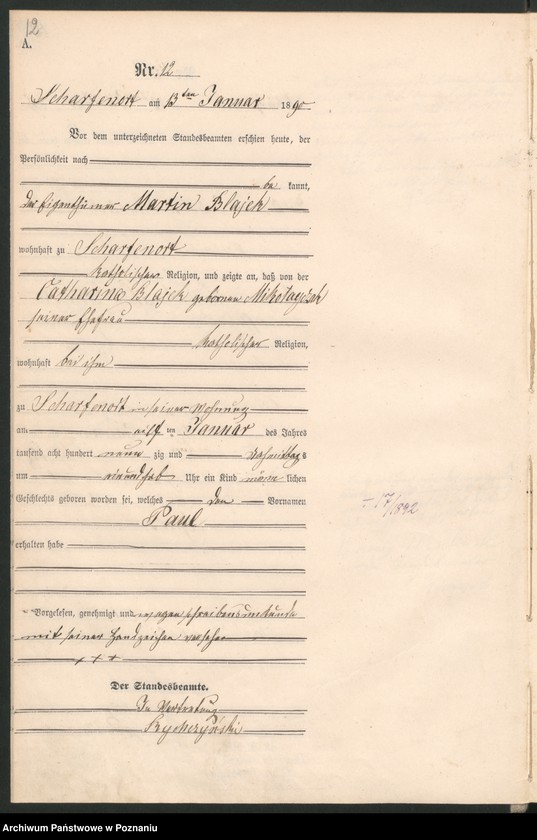 12
A.
Nr. 12
Scharfenort am 13ten Januar 1890
Vor dem unterzeichneten Standesbeamten erschien heute, der
Persönlichkeit nach
be kannt,
der Eigenthümer Martin Blajek
wohnhaft zu Scharfenort
katholischer Religion, und zeigte an, daß von der
Catharina Blajek geborenen Mikołajczak
seiner Ehefrau
katholischer Religion,
wohnhaft bei ihm
zu Scharfenort in seiner Wohnung
am elften Januar des Jahres
tausend acht hundert neun zig und mittags
um Uhr ein Kind männ lichen
Geschlechts geboren worden sei, welches den Vornamen
Paul
erhalten habe
Vorgelesen, genehmigt und wegen schreibensunkunde
mit seinen Handzeichen versehen
+ + +
Der Standesbeamte.
In Vertretung
+ 17/1892
Archiwum Państwowe w Poznaniu